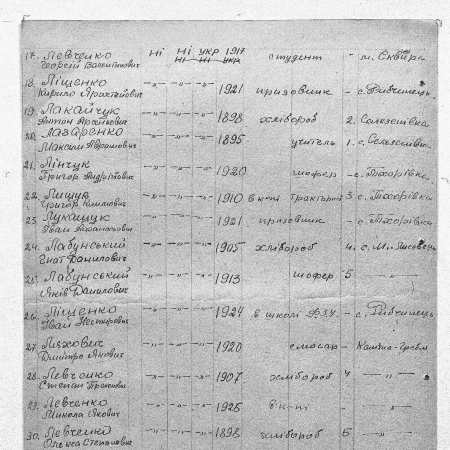 17. Левченко Ні Ні укр 1917 студент - м. Сквира
Георгій Васильович Ні укр
18. Ліщенко -"- -"- -"- 1921 призовник - с. Рибчинець
Кирило
19. Лакайчук -"- -"- -"- 1898 хлібороб 2. Селезенівка
Антон Арсенович
20. Лазаренко -"- -"- -"- 1895 учитель 1. с. Селезенівка
Максим Абрамович
21. Лінчук -"- -"- -"- 1920 шофер - с. Тхорівка
Григор Андрійович
22. -"- -"- -"- 1910 3 с. Тхорівка
Григор
23. Лукащук -"- -"- -"- 1921 призовник - с. Тхорівка
Іван Афанасович
24. Лабунський -"- -"- -"- 1905 хлібороб 4. с. М.
Гнат Данилович
25. Лабунський -"- -"- -"- 1913 шофер 5 -"-
Яків Данилович
26. Ліщенко -"- -"- -"- 1924 в школі ФЗУ - с. Рибчинець
Іван Нестирович
27. Ляхович -"- -"- -"- 1920 слюсар -
Дмитро Якович
28. Левченко -"- -"- -"- 1907 хлібороб 4 -"-
Степан
29. Левченко -"- -"- -"- 1925 - -"-
Микола Якович
30. Левченко -"- -"- -"- 1898 хлібороб 5 -"-
Олекса Степанович